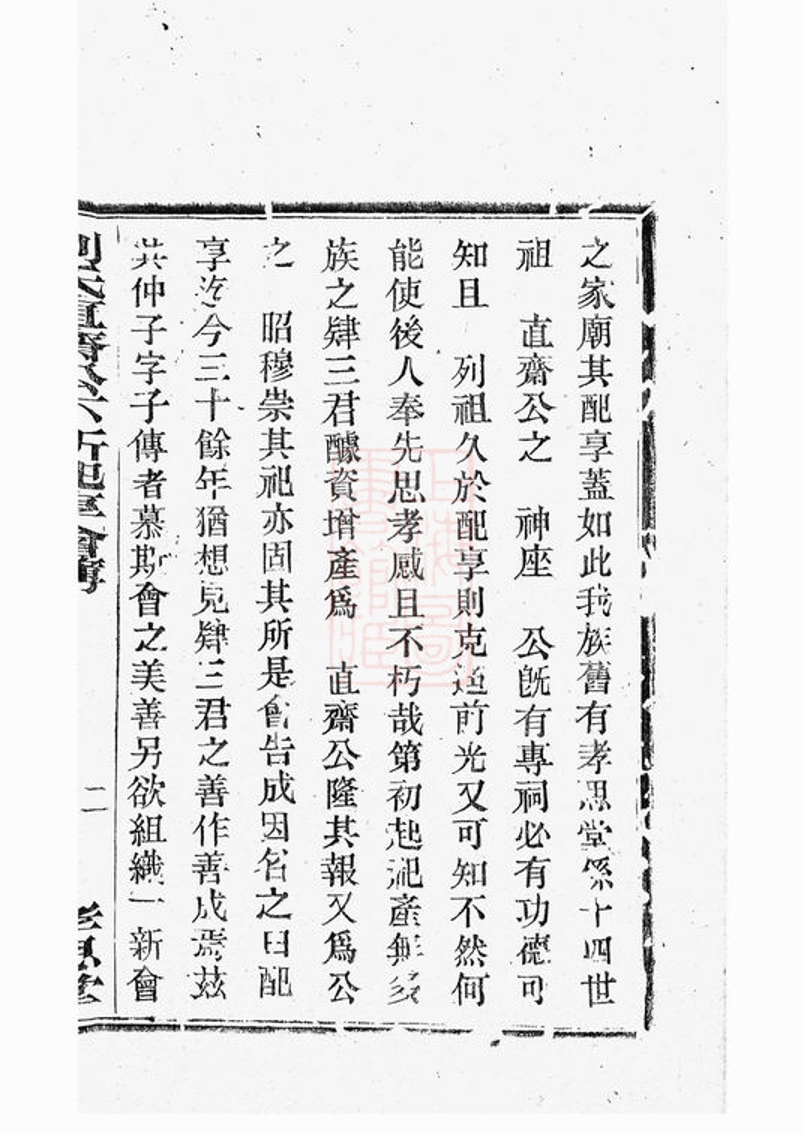 之家廟其配享蓋如此我族舊有孝思堂係十四世
祖　直齋公之　神座　公旣有專祠必有功德可
知且　列祖久於配享則克過前光又可知不然何
能使後人奉先思孝感且不朽哉第初起祀產無多
族之肄三君醵資增產爲　直齋公隆其報又爲公
之　昭穆崇其祀亦固其所是會告成因名之曰配
享迄今三十餘年猶想見肄三君之善作善成焉茲
洪仲子字子傳者慕斯會之美善另欲組織一新會
劉氏直齋公六新祀享會簿
二
孝思堂